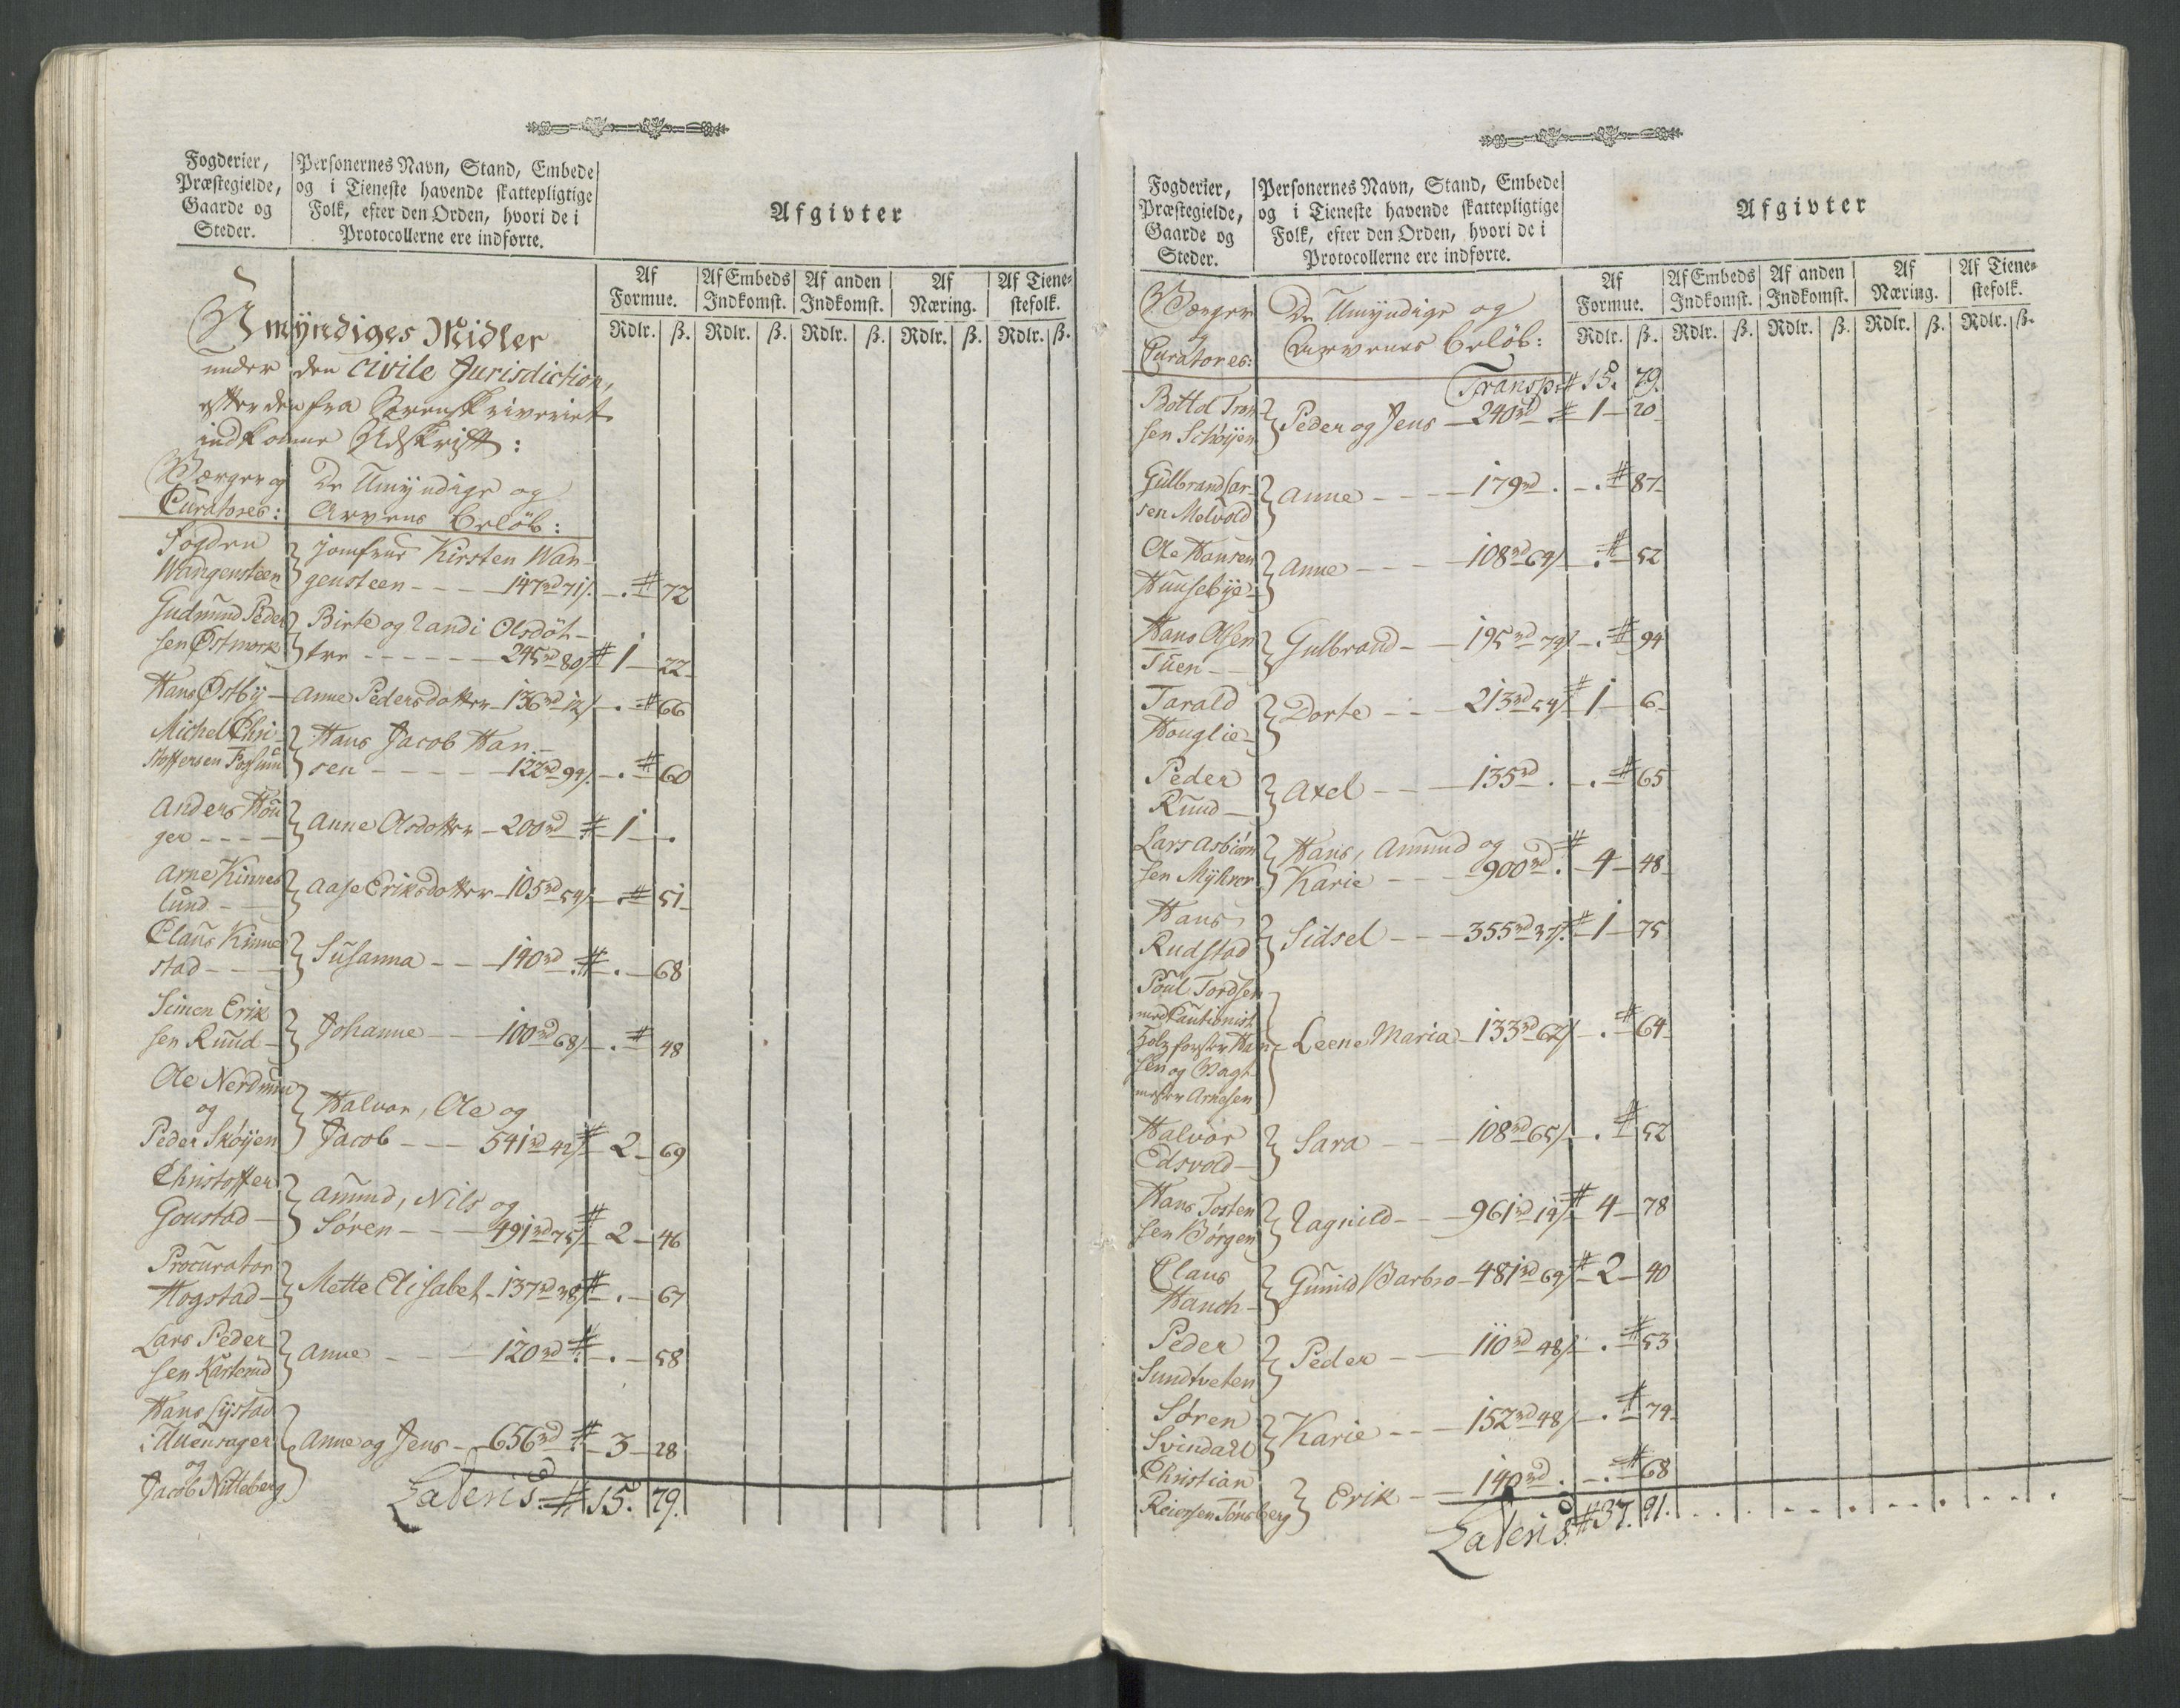 Fogderier, Præstegielde, Gaarde og Steder.
Personernes Navn, Stand, Embede og i Tieneste havende skattepligtige Folk, efter den Orden, hvori de i Protocollerne ere indførte.
Afgivter
Af Formue. Af Embeds Indkomst. Af anden Indkomst. Af Næring. Af Tienestefolk.
Rdlr. ß. Rdlr. ß. Rdlr. ß. Rdlr. ß. Rdlr. ß.
Umÿndiges Midler
under den civile Jurisdiction,
efter den fra Sorenskriveriet
indkomne Udskrift:
Værger og De Umÿndige og
Curatores: Arvens Beløb:
Fogden Jomfrue Kirsten Wan-
Wangensteen gensteen - - - - 147rd 71ß - . # 72
Gudmund Peder Birte og Randi Olsdøt-
sen Østmork tre - - - - - - 245rd 80ß # 1 - 22
Hans Østbÿ - Anne Pedersdotter - 136rd 12ß - . # 66
Michel Chri- Hans Jacob Han-
stoffersen Fossum sen - - - - - 122rd 94ß - . # 60
Anders Hou
ger - - - - Anne Olsdotter - 200rd # 1 - .
Arne Kinnes
lund - - Aase Eriksdotter - 105rd 54ß - . # 51
Claus Kinne
stad - - - Susanna - - - 140rd . # . - 68
Simen Erik
sen Ruud - Johanne - - - 100rd 68ß - . # 48
Ole Nerdrum
og Halvor, Ole og
Peder Skøÿen Jacob - - - 541rd 42ß # 2 - 69
Christoffer Amund, Nils og
Goustad - Søren - - - 491rd 75ß # 2 - 46
Procurator
Hogstad - Mette Elisabet - 137rd 38ß # . - 67
Lars Peder
sen Karterud Anne - - - - 120rd # . - 58
Hans Lÿstad
i Uuensager Anne og Jens - 656rd # 3 - 28
og
Jacob Nitteberg
Lateris # 15. 79.
Fogderier, Præstegielde, Gaarde og Steder.
Personernes Navn, Stand, Embede og i Tieneste havende skattepligtige Folk, efter den Orden, hvori de i Protocollerne ere indførte.
Afgivter
Af Formue. Af Embeds Indkomst. Af anden Indkomst. Af Næring. Af Tienestefolk.
Rdlr. ß. Rdlr. ß. Rdlr. ß. Rdlr. ß. Rdlr. ß.
Værger De Umÿndige og
Curatores: Arvenes Beløb:
Transp: # 15. 79.
sen Schøÿen Peder og Jens - 240rd # 1 - 20
Gulbrand Lar-
sen Melvold Anne - - - - 179rd . - . # 87
Ole Hansen
Huusebÿe - Anne - - - - 108rd 64ß - . # 52
Hans Olsen
Tuen - - Gulbrand - - 195rd 74ß - . # 94
Tarald
Houglie - Dorte - - - 213rd 54ß # 1 - 6
Peder
Ruud - Axel - - - 135rd . - . # 65
Lars Asbiørn Hans, Amund og
sen Mÿhrer Karie - - - 900rd . # 4 - 48
Hans
Rudstad Sidsel - - - 355rd 37ß # 1 - 75
Poul Tordsen
med Cautionist
Leene Maria - 133rd 62ß - . # 64
sen og Vagt-
mester Arnesen
Halvor
Edsvold - Sara - - - 108rd 65ß - . # 52
Hans Tosten
sen Børgen Ragnild - - - 961rd 19ß # 4 - 78
Claus
Hanch - Gunild Barbro - 481rd 69ß # 2 - 40
Peder
Sundtveten Peder - - - 110rd 48ß - . # 53
Søren
Svindall Karie - - - 152rd 48ß - . # 74
Christian
Reiersen Tønsberg Erik - - 140rd . - . # 68
Lateris # 37. 91.